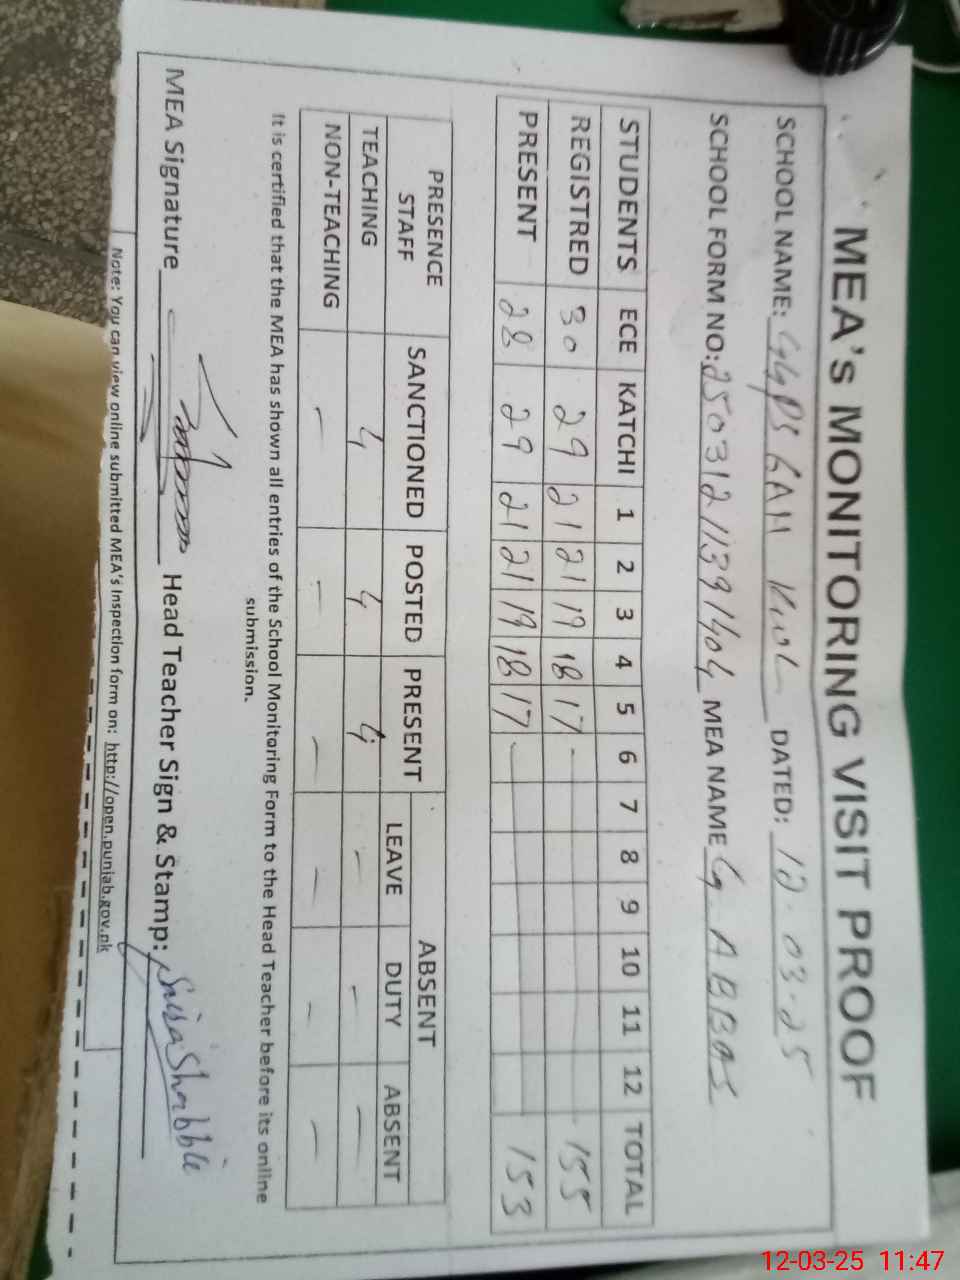 MEA's MONITORING VISIT PROOF
SCHOOL NAME: DATED: 12-03-25
SCHOOL FORM NO: 25031211391404 MEA NAME G. ABBAS
STUDENTS ECE KATCHI 1 2 3 4 5 6 7 8 9 10 11 12 TOTAL
REGISTRED 30 29 21 21 19 18 17 - 155
PRESENT 28 29 21 21 19 18 17 - 153
PRESENCE STAFF SANCTIONED POSTED PRESENT ABSENT
LEAVE DUTY ABSENT
TEACHING 4 4 4 - - -
NON-TEACHING - - - - - -
It is certified that the MEA has shown all entries of the School Monitoring Form to the Head Teacher before its online
submission.
MEA Signature Head Teacher Sign & Stamp:
Note: You can view online submitted MEA's Inspection form on: http://open.punjab.gov.pk
12-03-25 11:47